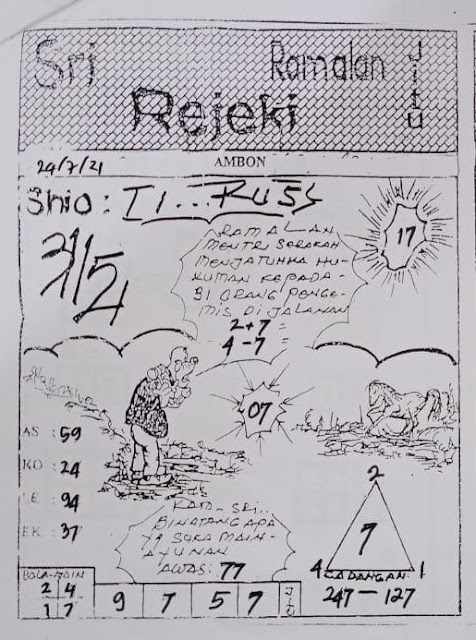 Sri
Ramalan
Jitu
Rejeki
AMBON
24/7/21
Shio : TI...KUSS
17
RAMALAN
MENTRI SERAKAH
MENJATUHKA HU-
KUMAN KEPADA-
31 ORANG PENGE-
MIS DI JALANAN
2+7 =
4-7 =
07
AS : 59
KO : 24
LE : 94
EK : 37
RAM-SRI...
BINATANG APA
YG SUKA MAIN-
AYUNAN
AWAS: 77
2
7
4 CADANGAN: 1
247 — 127
BOLA-MAIN
2 4
1 7
9 7 5 7